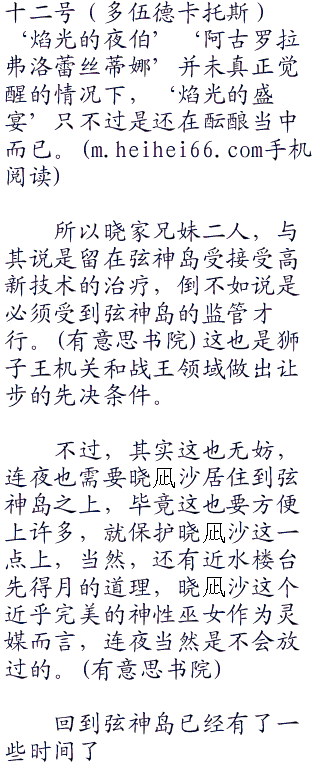 十二号（多伍德卡托斯）
‘焰光的夜伯’‘阿古罗拉
弗洛蕾丝蒂娜’并未真正觉
醒的情况下，‘焰光的盛
宴’只不过是还在酝酿当中
而已。(m.heihei66.com手机
阅读)
所以晓家兄妹二人，与
其说是留在弦神岛受接受高
新技术的治疗，倒不如说是
必须受到弦神岛的监管才
行。(有意思书院)这也是狮
子王机关和战王领域做出让
步的先决条件。
不过，其实这也无妨，
连夜也需要晓凪沙居住到弦
神岛之上，毕竟这也要方便
上许多，就保护晓凪沙这一
点上，当然，还有近水楼台
先得月的道理，晓凪沙这个
近乎完美的神性巫女作为灵
媒而言，连夜当然是不会放
过的。(有意思书院)
回到弦神岛已经有了一
些时间了